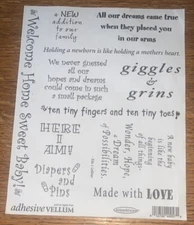 a
NEW
addition
to our
family
All our dreams came true
when they placed you
in our arms
Holding a newborn is like holding a mothers heart
We never guessed
all our
hopes and dreams
could come in such
a small package
giggles
&
grins
ten tiny fingers and ten tiny toes
Welcome Home Sweet Baby!
HERE
I
AM!
Diapers
and
Pins
Wonder, Hope,
a Dream
of
Possibilities
A new baby
is like the
beginning
of all
things
Made with LOVE
adhesive VELLUM